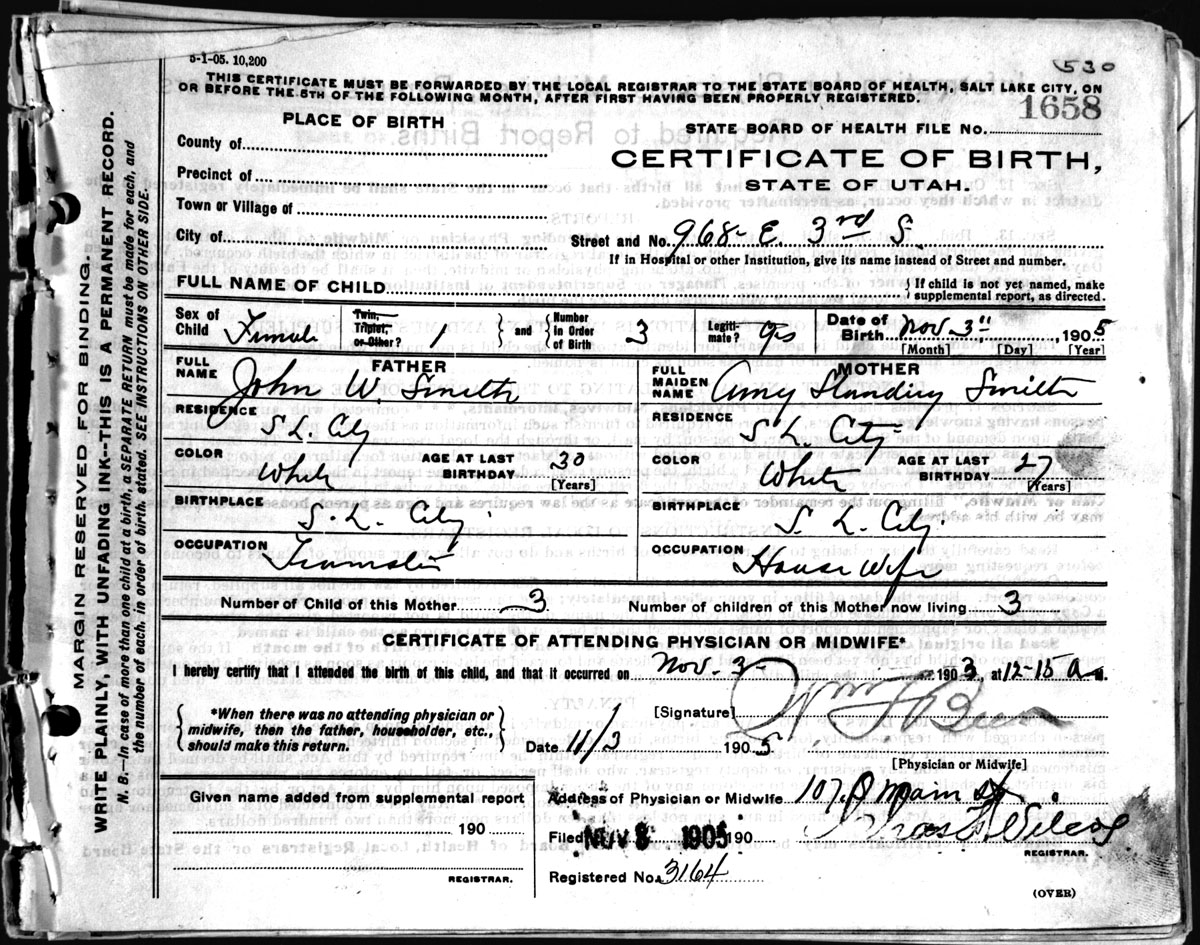 5-1-05. 10,200
530
THIS CERTIFICATE MUST BE FORWARDED BY THE LOCAL REGISTRAR TO THE STATE BOARD OF HEALTH, SALT LAKE CITY, ON
OR BEFORE THE 5TH OF THE FOLLOWING MONTH, AFTER FIRST HAVING BEEN PROPERLY REGISTERED.
1658
PLACE OF BIRTH
STATE BOARD OF HEALTH FILE NO.
County of
CERTIFICATE OF BIRTH,
Precinct of
STATE OF UTAH.
Town or Village of
City of
Street and No. 968 E. 3rd S.
If in Hospital or other Institution, give its name instead of Street and number.
FULL NAME OF CHILD { If child is not yet named, make
supplemental report, as directed.
Sex of Child Female Twin, Triplet, or Other? 1 { and } Number in Order of Birth 3 Legiti- mate? yes Date of Birth Nov 3", 1905
[Month] [Day] [Year]
FATHER
FULL NAME John W. Smith
RESIDENCE S. L. City
COLOR White AGE AT LAST BIRTHDAY 30
[Years]
BIRTHPLACE S. L. City
OCCUPATION Teamster
MOTHER
FULL MAIDEN NAME Amy Standing Smith
RESIDENCE S. L. City
COLOR White AGE AT LAST BIRTHDAY 27
[Years]
BIRTHPLACE S. L. City
OCCUPATION House Wife
Number of Child of this Mother 3 Number of children of this Mother now living 3
CERTIFICATE OF ATTENDING PHYSICIAN OR MIDWIFE*
I hereby certify that I attended the birth of this child, and that it occurred on Nov. 3 1903, at 12-15 a M.
{ *When there was no attending physician or
midwife, then the father, householder, etc.,
should make this return. }
[Signature]
Date 11/3 1905
[Physician or Midwife]
Given name added from supplemental report
190
REGISTRAR.
Address of Physician or Midwife 107 Main St.
Filed NOV 8 1905 190
REGISTRAR.
Registered No. 3164
(OVER)
MARGIN RESERVED FOR BINDING.
WRITE PLAINLY, WITH UNFADING INK--THIS IS A PERMANENT RECORD.
N. B.--In case of more than one child at a birth, a SEPARATE RETURN must be made for each, and
the number of each, in order of birth, stated. SEE INSTRUCTIONS ON OTHER SIDE.